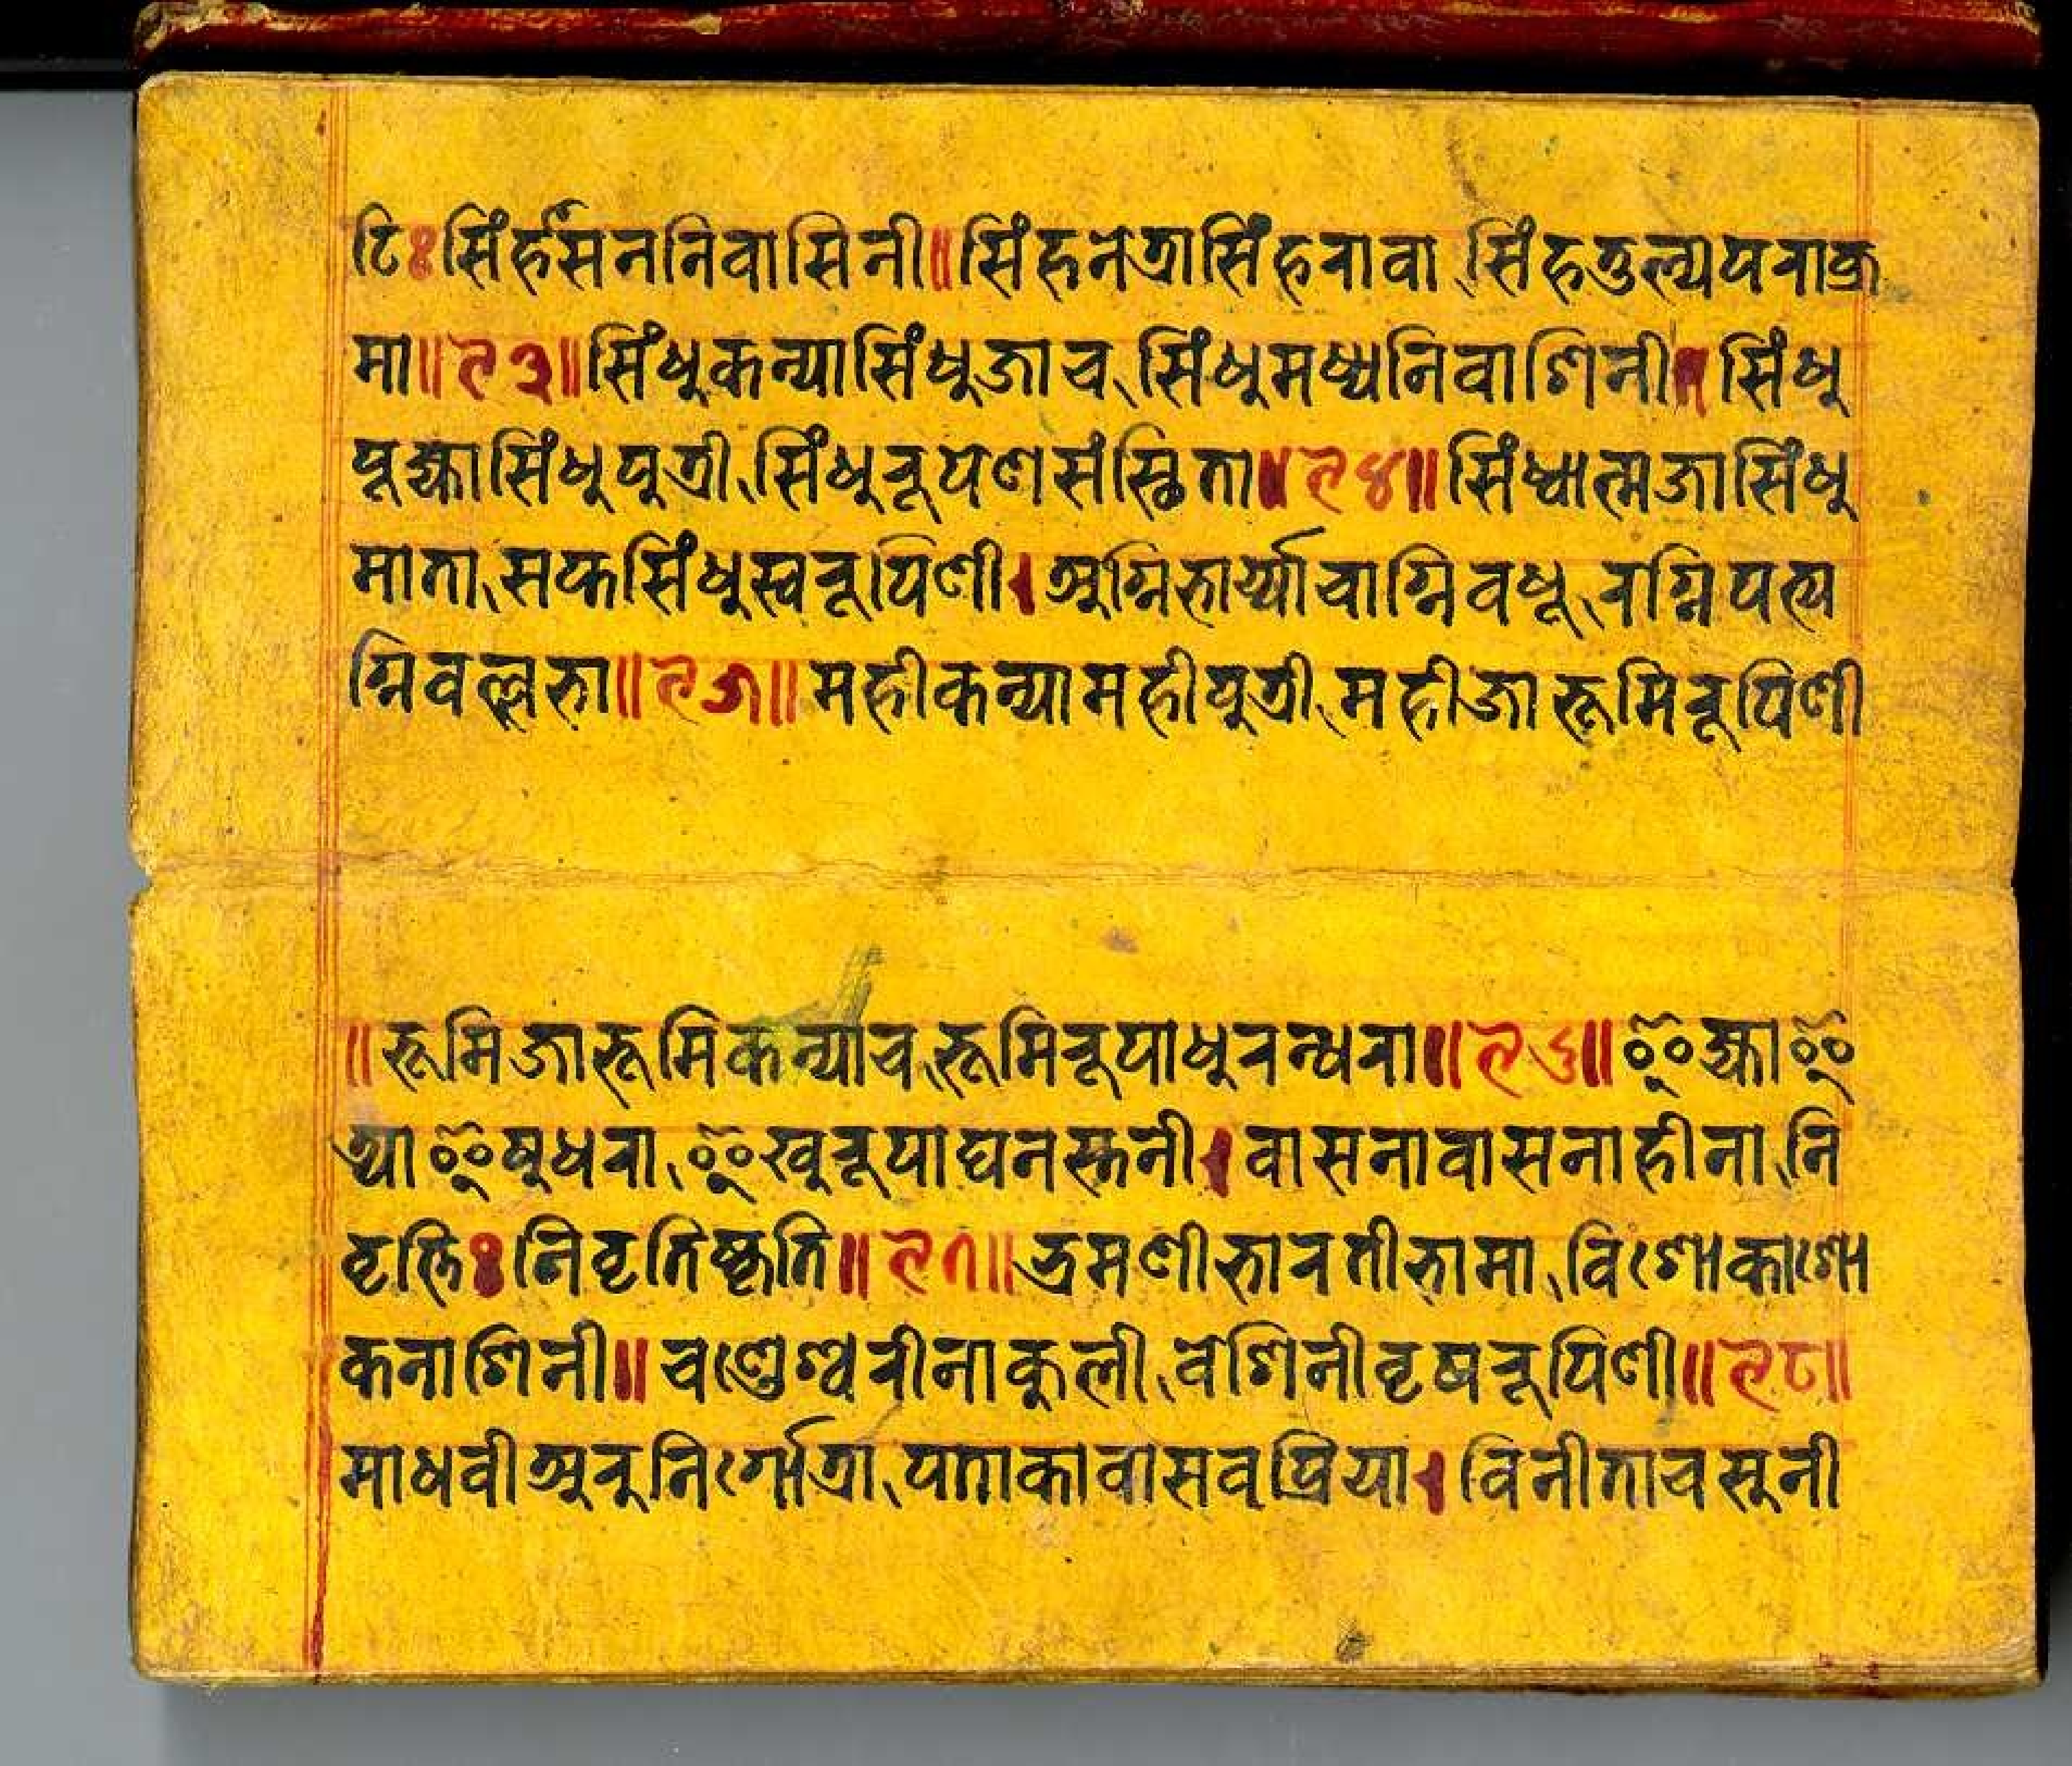 टिःसिंर्हसननिवासिनी॥सिंहनेत्रासिंहरावा सिंहतुल्यपराक्र
मा॥९३॥सिंधुकन्यासिंधुजाच सिंधुमध्यनिवाशिनी।सिंधु
पूज्यासिंधुपुत्री सिंधुरूपेणसंस्थिता॥९४॥सिंध्वात्मजासिंधु
माता सप्तसिंधुस्वरूपिणी।अग्निभार्य्याचाग्निवधू रग्निपत्न्य
ग्निवल्लभा॥९५॥महीकन्यामहीपुत्री महीजाभूमिरूपिणी
॥भूमिजाभूमिकन्याच भूमिरूपाधुरन्धरा॥९६॥इज्याइ
थ्याइषुधरा इखुरूपाघनस्तनी।वासनावासनाहीना नि
वृत्तिःनिवृतिष्कृति॥९७॥भ्रमणीभारतीभामा विशोकाशो
कनाशिनी॥चण्डेश्वरीनाकुली वेशिनीवृषरूपिणी॥९८॥
माधवीअरुनिर्गोत्रा पताकावासवप्रिया।विनीताचसुनी